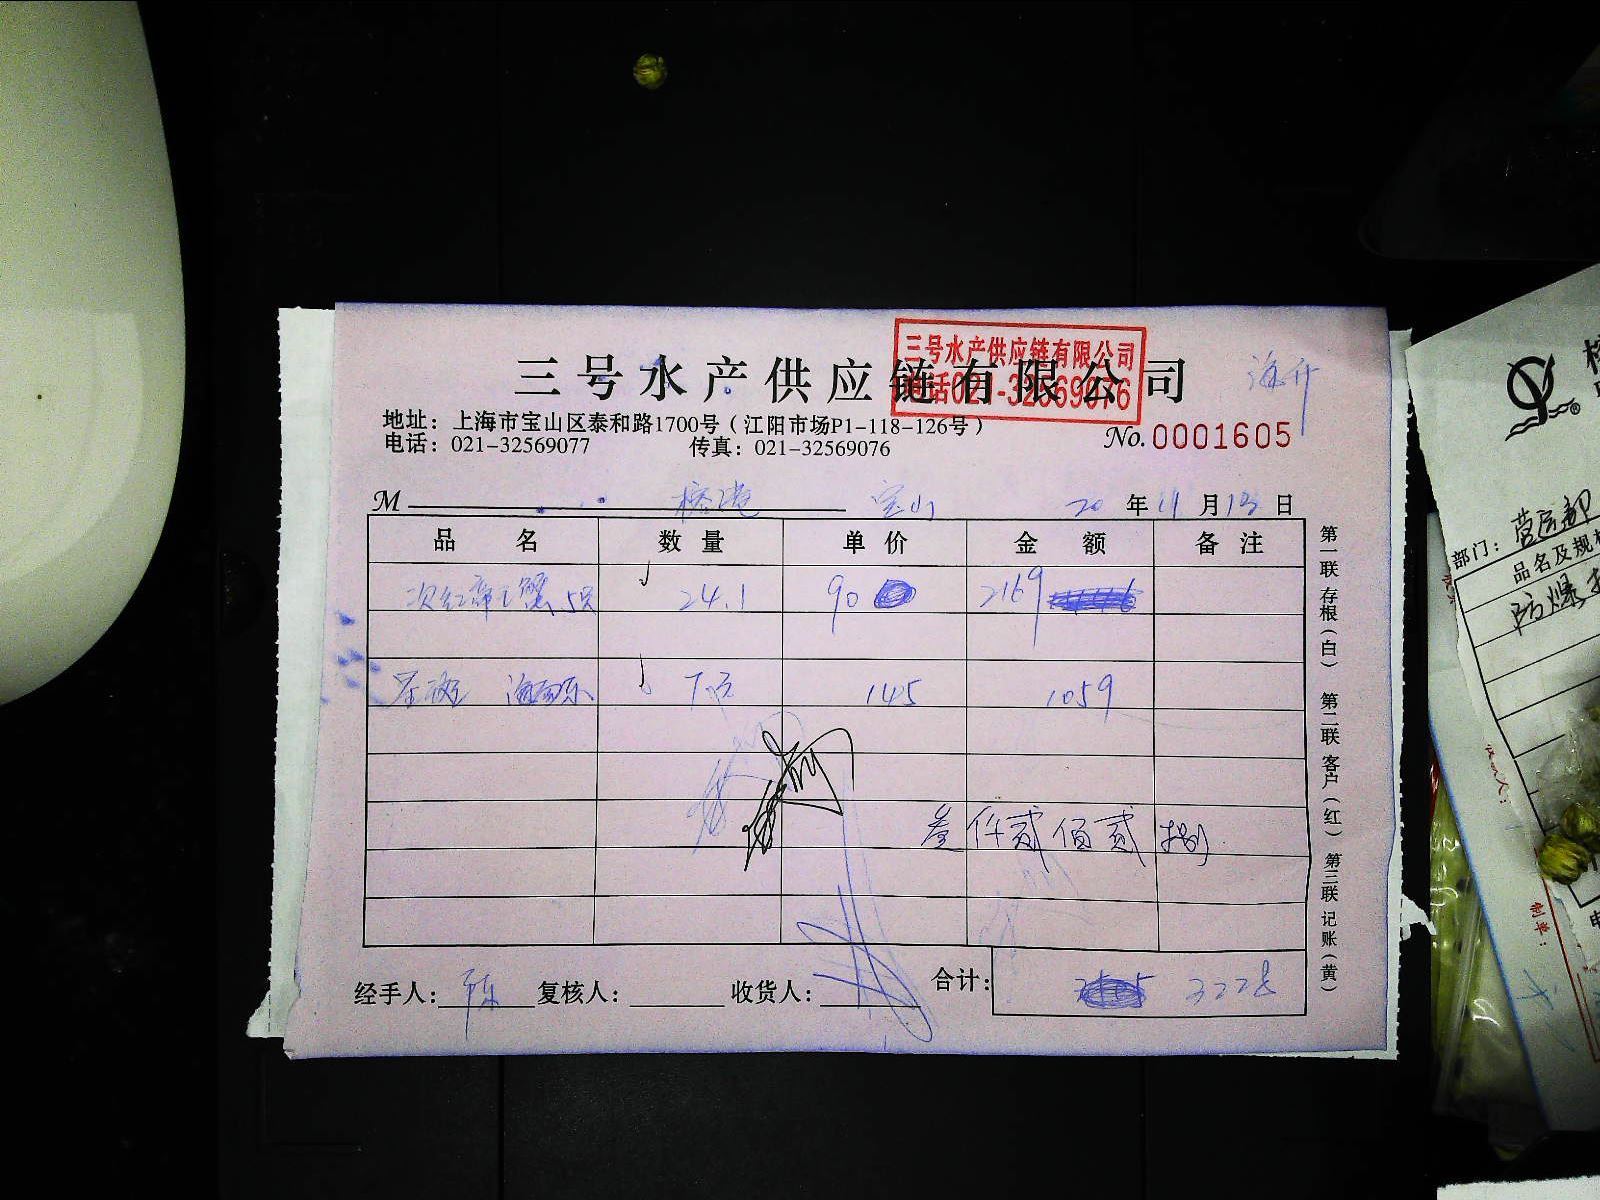 三号水产供应链有限公司
三号水产供应链有限公司
电话021-32569076
海升
地址：上海市宝山区泰和路1700号（江阳市场P1-118-126号）
电话：021-32569077 传真：021-32569076
No.0001605
M 榕港 宝山 20年11月13日
品名 数量 单价 金额 备注
次红帝王蟹 5只 24.1 90 2169
145 1059
叁仟贰佰贰捌
经手人：陈 复核人： 收货人： 合计： 3228
第一联 存根（白） 第二联 客户（红） 第三联 记账（黄）
部门：营运部
品名及规格
防爆
制单：